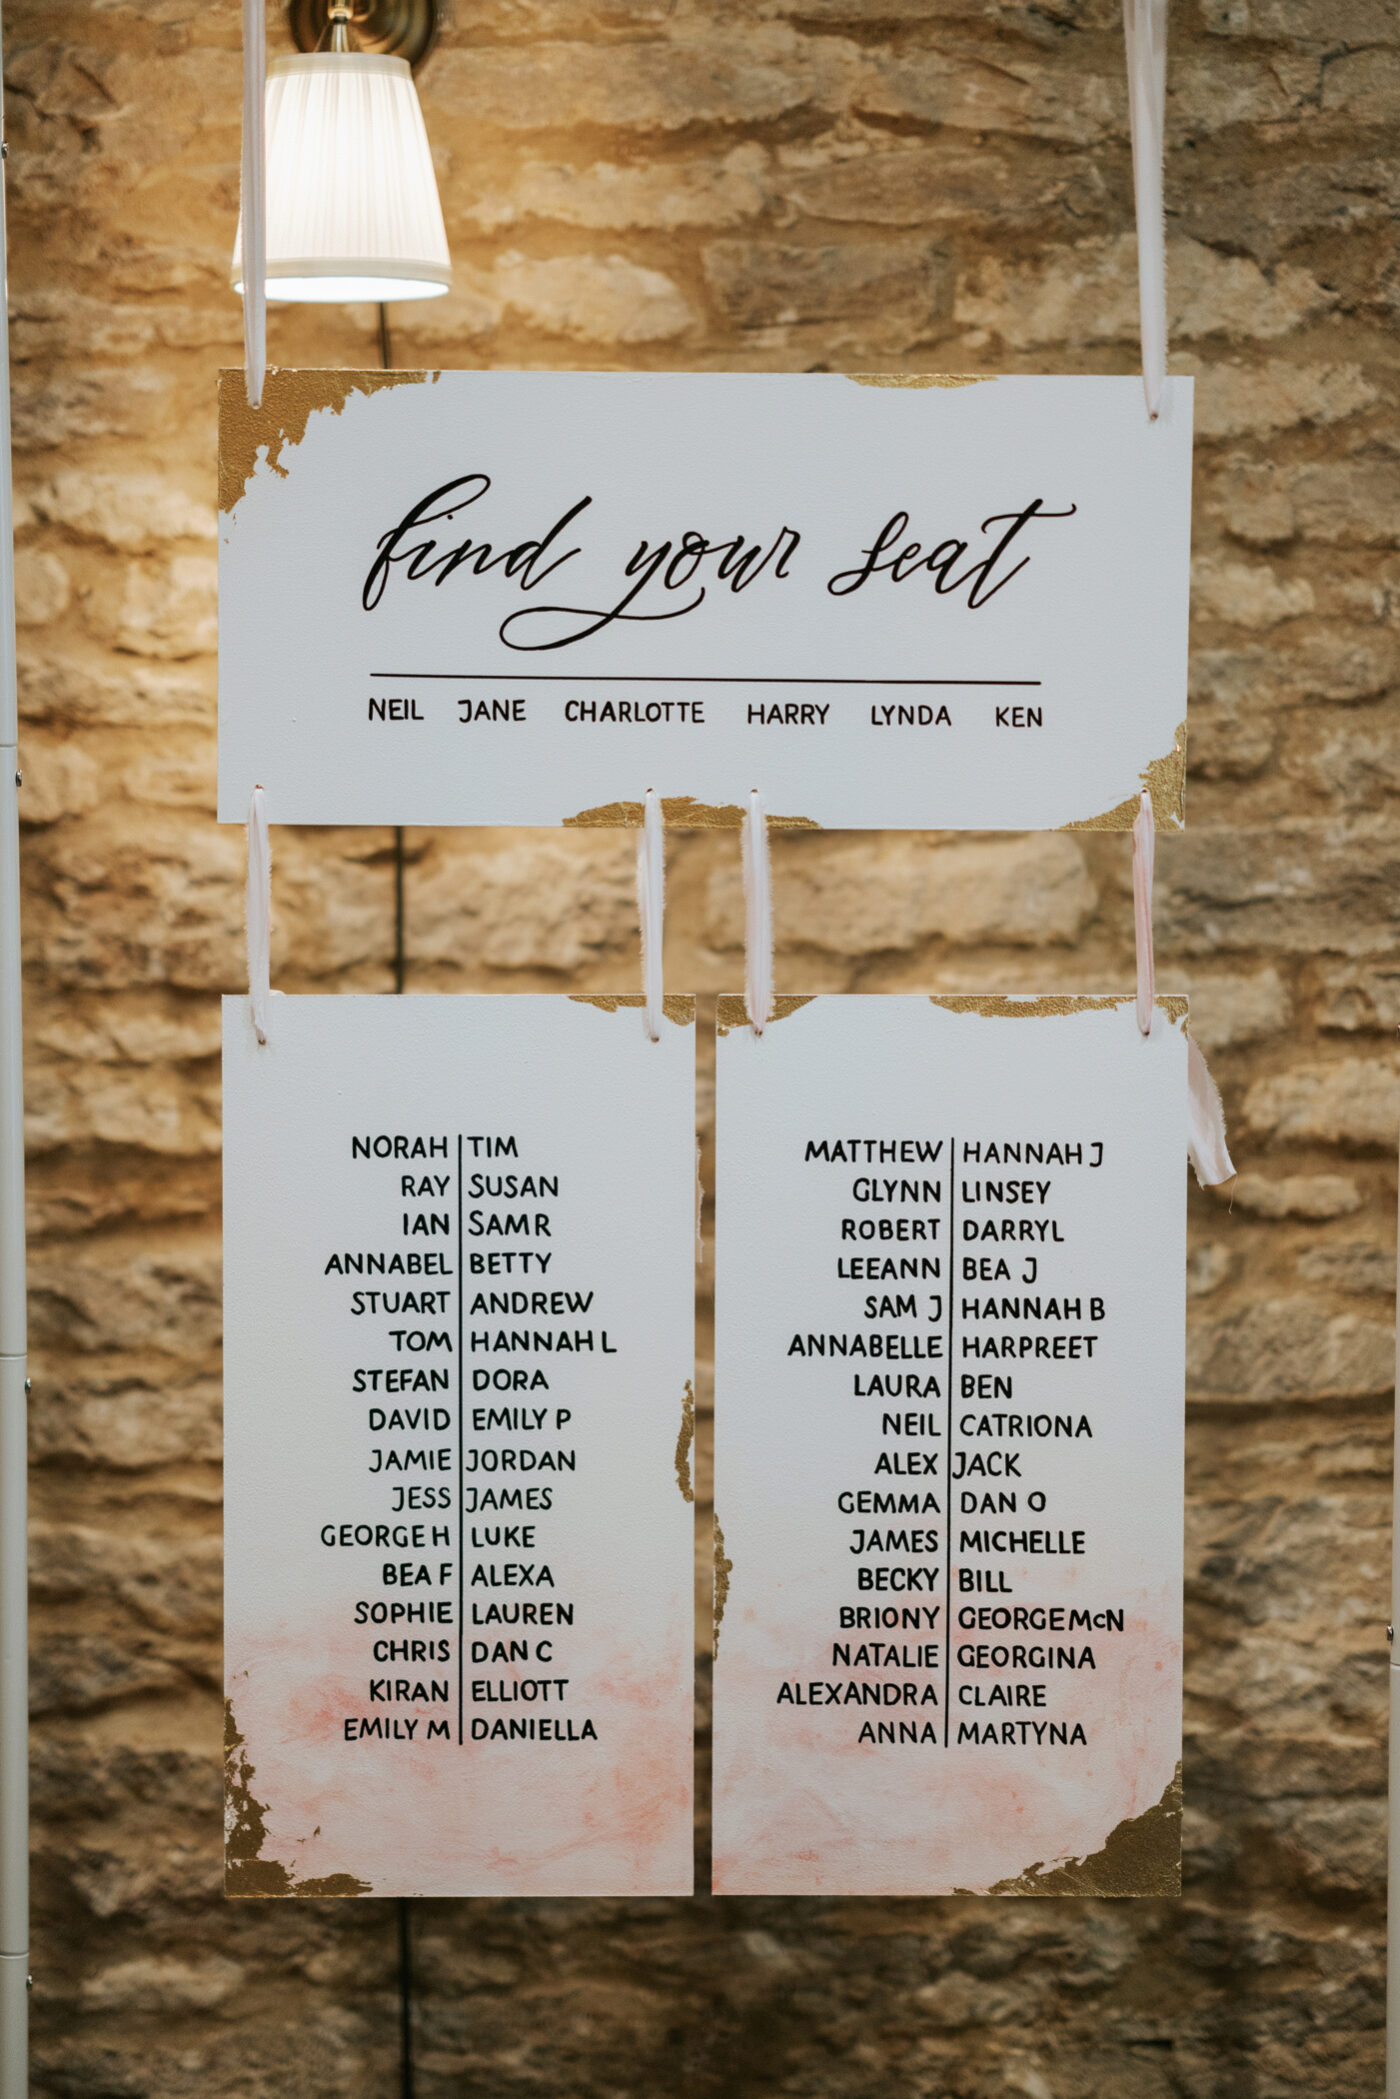 find your seat
NEIL JANE CHARLOTTE HARRY LYNDA KEN
NORAH TIM
RAY SUSAN
IAN SAM R
ANNABEL BETTY
STUART ANDREW
TOM HANNAH L
STEFAN DORA
DAVID EMILY P
JAMIE JORDAN
JESS JAMES
GEORGE H LUKE
BEA F ALEXA
SOPHIE LAUREN
CHRIS DAN C
KIRAN ELLIOTT
EMILY M DANIELLA
MATTHEW HANNAH J
GLYNN LINSEY
ROBERT DARRYL
LEEANN BEA J
SAM J HANNAH B
ANNABELLE HARPREET
LAURA BEN
NEIL CATRIONA
ALEX JACK
GEMMA DAN O
JAMES MICHELLE
BECKY BILL
BRIONY GEORGE McN
NATALIE GEORGINA
ALEXANDRA CLAIRE
ANNA MARTYNA